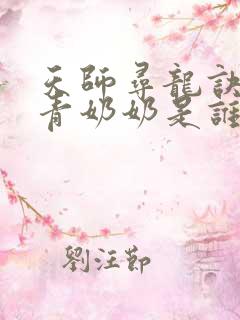 天師尋龍訣
青奶奶是誰
劉汪節